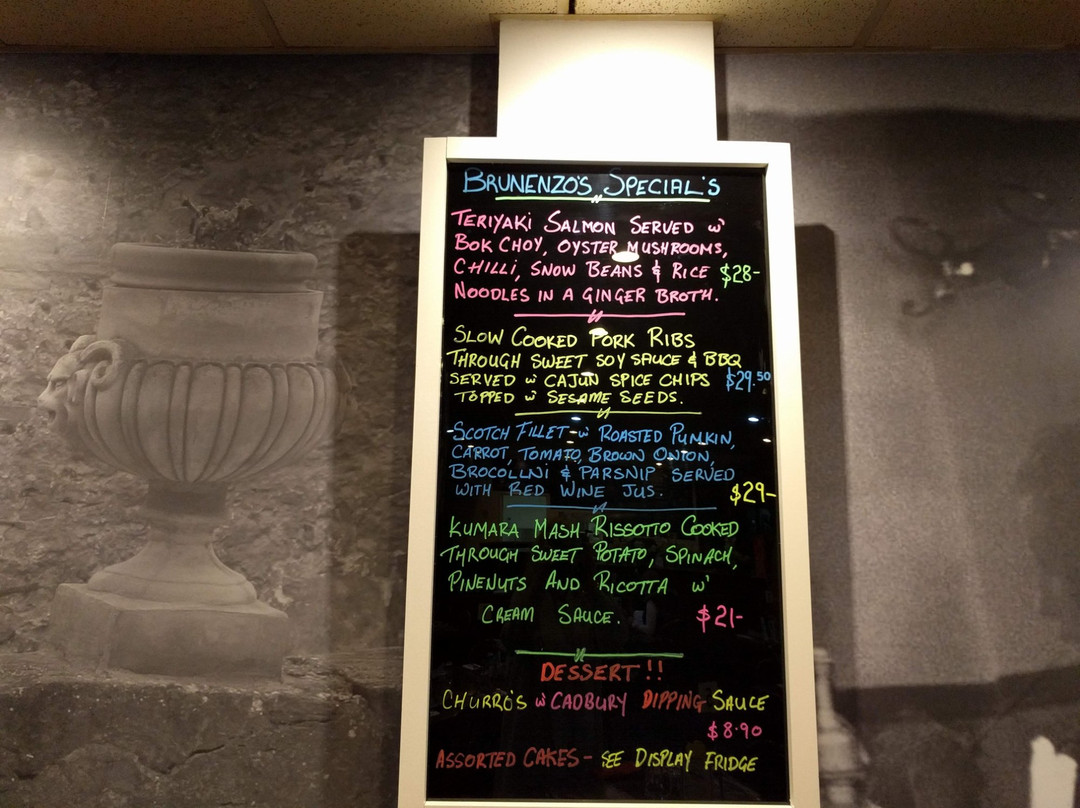 BRUNENZO'S SPECIAL'S
TERIYAKI SALMON SERVED w'
BOK CHOY, OYSTER MUSHROOMS,
CHILLI, SNOW BEANS & RICE $28-
NOODLES IN A GINGER BROTH.
SLOW COOKED PORK RIBS
THROUGH SWEET SOY SAUCE & BBQ
SERVED w' CAJUN SPICE CHIPS $29.50
TOPPED w' SESAME SEEDS.
SCOTCH FILLET w' ROASTED PUMKIN,
CARROT, TOMATO, BROWN ONION,
BROCOLLNI & PARSNIP SERVED
WITH RED WINE JUS. $29-
KUMARA MASH RISSOTTO COOKED
THROUGH SWEET POTATO, SPINACH,
PINENUTS AND RICOTTA w'
CREAM SAUCE. $21-
DESSERT!!
CHURRO'S w' CADBURY DIPPING SAUCE
$8.90
ASSORTED CAKES - SEE DISPLAY FRIDGE